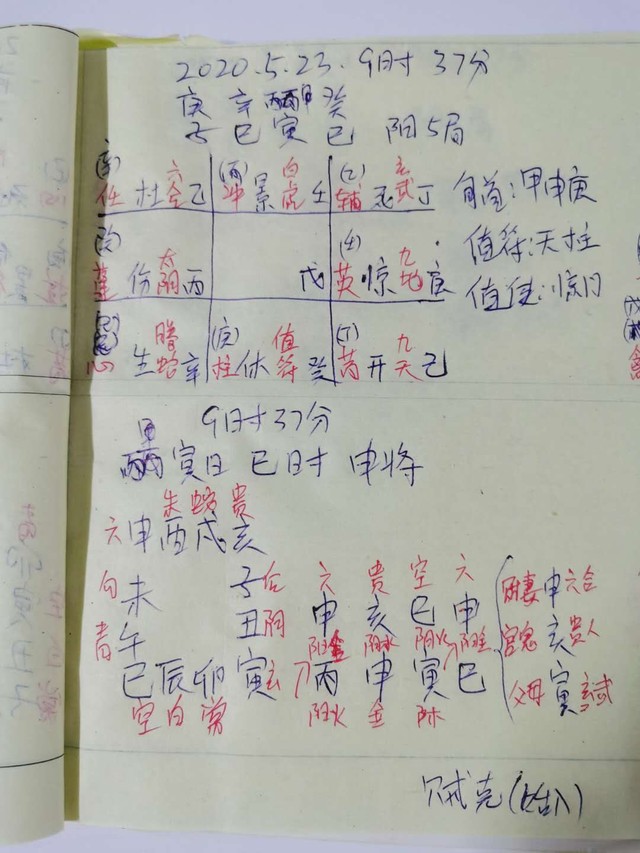 2020.5.23. 9时37分
庚 辛 甲 癸
子 巳 寅 巳 阳5局
任 杜 六合 乙 (丙) 冲 景 白虎 壬 (乙) 辅 死 玄武 丁 旬首:甲申庚
伤 太阴 丙 戊 (壬) 英 惊 九地 庚 值符:天柱
值使:惊门
心 生 腾蛇 辛 (庚) 柱 休 值符 癸 (丁) 芮 开 九天 己
9时37分
甲
寅日 巳时 申将
朱 蛇 贵
六 申 酉 戌 亥
勾 未 子 后 六 贵 空 六 妻 申 六合
丑 阴 申 亥 巳 申 官鬼 亥 贵人
青 午 阳金 阴水 阴火 阳金
巳 辰 卯 寅 玄 丙 申 寅 巳 父母 寅 玄武
空 白 常 阳火 金